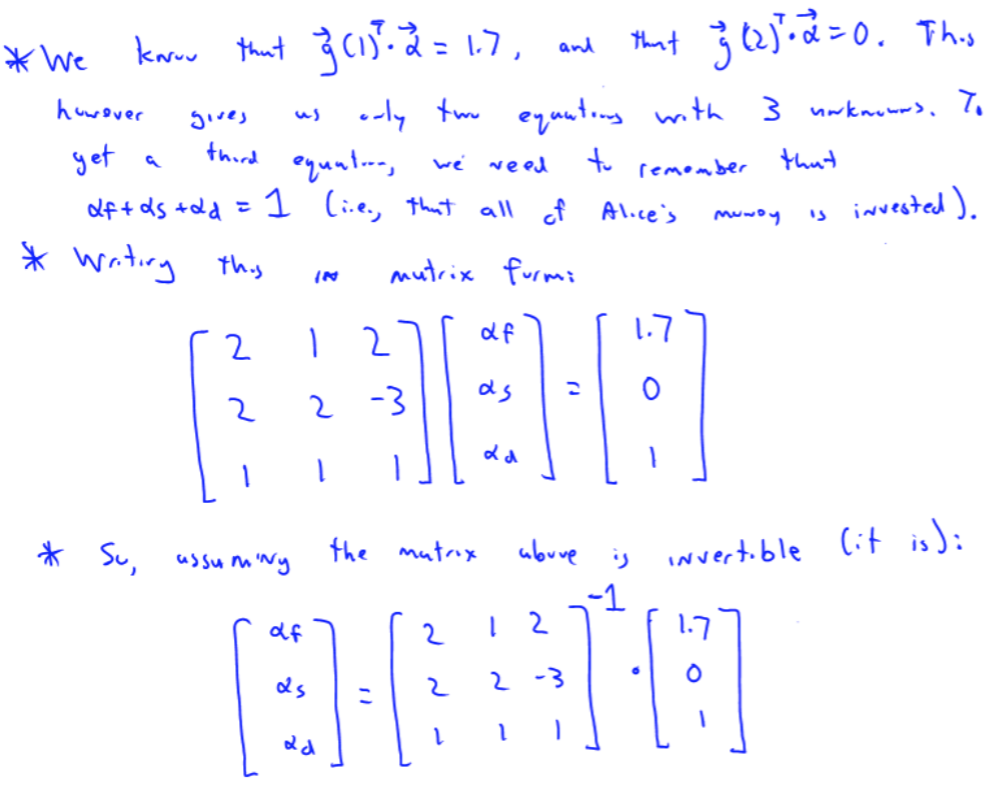 * We know that g⃗(1)ᵀ·α⃗ = 1.7, and that g⃗(2)ᵀ·α⃗ = 0. This
however gives us only two equations with 3 unknowns. To
get a third equation, we need to remember that
αf + αs + αd = 1 (i.e., that all of Alice's money is invested).
* Writing this in matrix form:
[2 1 2] [αf] [1.7]
[2 2 -3] [αs] = [0]
[1 1 1] [αd] [1]
* So, assuming the matrix above is invertible (it is):
[αf] [2 1 2]⁻¹ [1.7]
[αs] = [2 2 -3] · [0]
[αd] [1 1 1] [1]